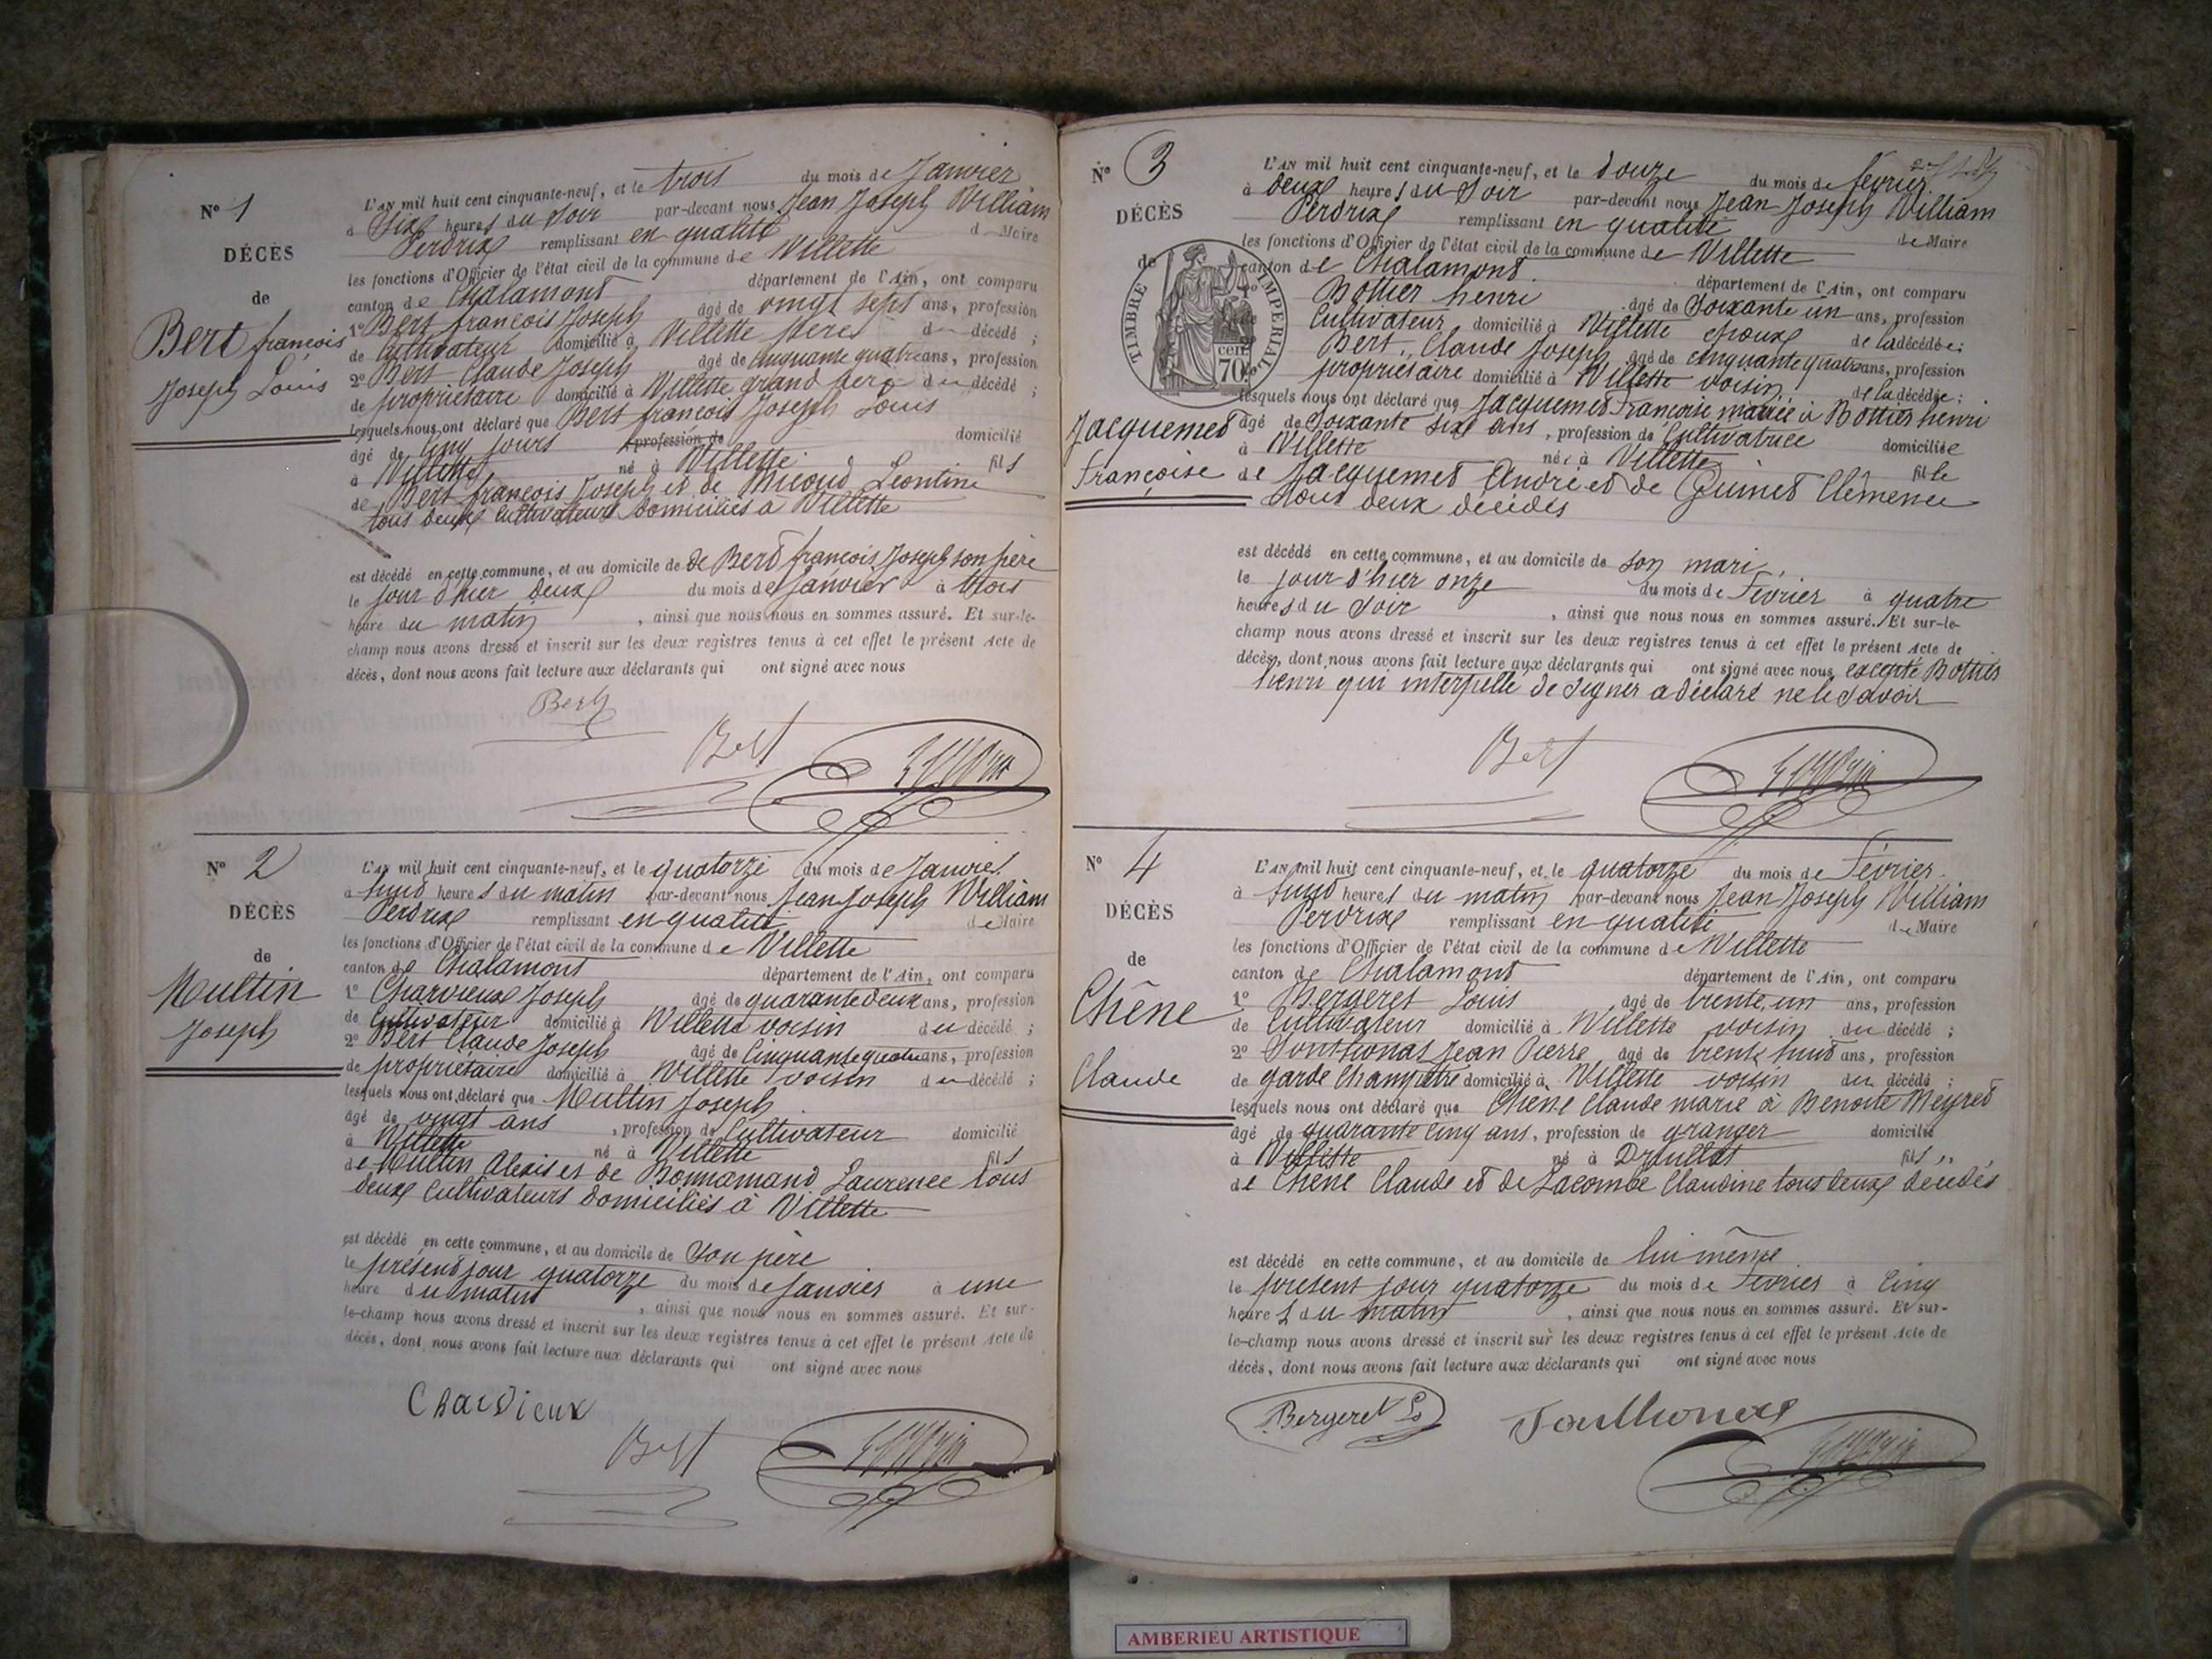 N° 1
DÉCÈS
de
Bert françois
Joseph Louis
L'AN mil huit cent cinquante-neuf, et le trois du mois de Janvier
à Six heures du Soir par-devant nous Jean Joseph William
Perdrix remplissant en qualité de Maire
les fonctions d'Officier de l'état civil de la commune de Villette
canton de Chalamont département de l'Ain, ont comparu
1° Bert françois Joseph âgé de vingt sept ans, profession
de Cultivateur domicilié à Villette père du décédé ;
2° Bert Claude Joseph âgé de Cinquante quatre ans, profession
de propriétaire domicilié à Villette grand père du décédé ;
lesquels nous ont déclaré que Bert françois Joseph Louis
âgé de Cinq jours , profession de domicilié
à Villette né à Villette fils
de Bert françois Joseph et de Micoud Léontine
tous deux Cultivateurs domiciliés à Villette
est décédé en cette commune, et au domicile de de Bert françois Joseph son père
le jour d'hier deux du mois de Janvier à trois
heure du matin , ainsi que nous nous en sommes assuré. Et sur-le-
champ nous avons dressé et inscrit sur les deux registres tenus à cet effet le présent Acte de
décès, dont nous avons fait lecture aux déclarants qui ont signé avec nous
Bert
Bert
Perdrix
N° 2
DÉCÈS
de
Multin
Joseph
L'AN mil huit cent cinquante-neuf, et le quatorze du mois de Janvier
à huit heures du matin par-devant nous Jean Joseph William
Perdrix remplissant en qualité de Maire
les fonctions d'Officier de l'état civil de la commune de Villette
canton de Chalamont département de l'Ain, ont comparu
1° Charvieux Joseph âgé de quarante deux ans, profession
de Cultivateur domicilié à Villette voisin du décédé ;
2° Bert Claude Joseph âgé de Cinquante quatre ans, profession
de propriétaire domicilié à Villette voisin du décédé ;
lesquels nous ont déclaré que Multin Joseph
âgé de vingt ans , profession de Cultivateur domicilié
à Villette né à Villette fils
de Multin Alexis et de Bonnamand Laurence tous
deux Cultivateurs domiciliés à Villette
est décédé en cette commune, et au domicile de Son père
le présent jour quatorze du mois de Janvier à une
heure du matin , ainsi que nous nous en sommes assuré. Et sur-
le-champ nous avons dressé et inscrit sur les deux registres tenus à cet effet le présent Acte de
décès, dont nous avons fait lecture aux déclarants qui ont signé avec nous
Charvieux
Bert
Perdrix
N° 3
DÉCÈS
de
TIMBRE IMPERIAL
70 cen
Jacquemet
Françoise
L'AN mil huit cent cinquante-neuf, et le douze du mois de février
à deux heures du Soir par-devant nous Jean Joseph William
Perdrix remplissant en qualité de Maire
les fonctions d'Officier de l'état civil de la commune de Villette
canton de Chalamont département de l'Ain, ont comparu
Bottier henri âgé de Soixante un ans, profession
Cultivateur domicilié à Villette époux de la décédée ;
Bert Claude Joseph âgé de Cinquante quatre ans, profession
propriétaire domicilié à Villette voisin de la décédée ;
lesquels nous ont déclaré que Jacquemet Françoise mariée à Bottier henri
âgé de Soixante Six ans , profession de Cultivatrice domiciliée
à Villette née à Villette fille
de Jacquemet André et de Guinet Clémence
tous deux décédés
est décédé en cette commune, et au domicile de son mari
le jour d'hier onze du mois de Février à quatre
heures du Soir , ainsi que nous nous en sommes assuré. Et sur-le-
champ nous avons dressé et inscrit sur les deux registres tenus à cet effet le présent Acte de
décès, dont nous avons fait lecture aux déclarants qui ont signé avec nous excepté Bottier
henri qui interpellé de Signer a déclaré ne le Savoir
Bert
Perdrix
N° 4
DÉCÈS
de
Chêne
Claude
L'AN mil huit cent cinquante-neuf, et le quatorze du mois de Février
à huit heures du matin par-devant nous Jean Joseph William
Perdrix remplissant en qualité de Maire
les fonctions d'Officier de l'état civil de la commune de Villette
canton de Chalamont département de l'Ain, ont comparu
1° Bergeret Louis âgé de trente un ans, profession
de Cultivateur domicilié à Villette voisin du décédé ;
2° Jean Pierre âgé de trente huit ans, profession
de garde Champêtre domicilié à Villette voisin du décédé ;
lesquels nous ont déclaré que Chêne Claude marié à Benoite Meyret
âgé de quarante Cinq ans, profession de granger domicilié
à Villette né à Druillat fils
de Chêne Claude et de Lacombe Claudine tous deux décédés
est décédé en cette commune, et au domicile de lui même
le présent jour quatorze du mois de Février à Cinq
heures du matin , ainsi que nous nous en sommes assuré. Et sur-
le-champ nous avons dressé et inscrit sur les deux registres tenus à cet effet le présent Acte de
décès, dont nous avons fait lecture aux déclarants qui ont signé avec nous
Bergeret Ls
Perdrix
AMBERIEU ARTISTIQUE